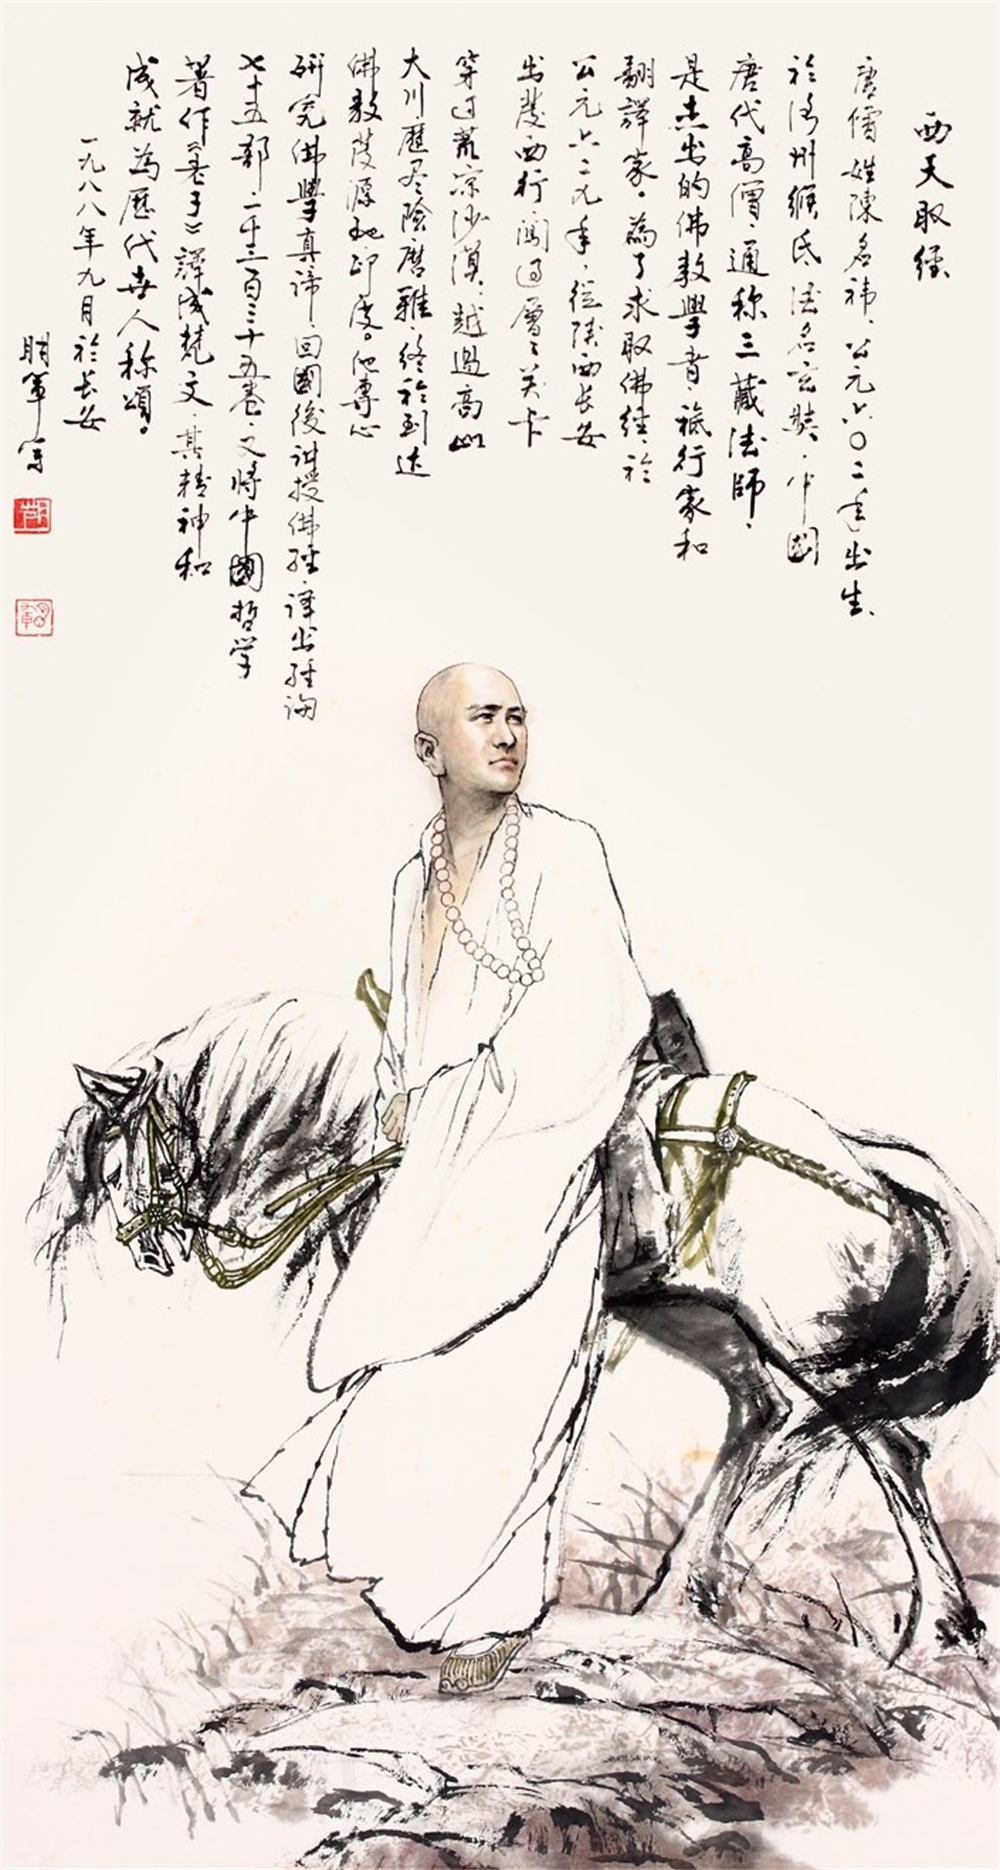 西天取经
唐僧姓陳名祎、公元六〇二年出生、
於洛州缑氏、法名玄奘、中國
唐代高僧、通称三藏法師、
是杰出的佛教學者、旅行家和
翻譯家。為了求取佛经、於
公元六二九年、從陕西长安
出發西行、闖過層々关卡
穿过荒凉沙漠、越過高山
大川、歷尽险磨難、终於到达
佛教發源地印度。他專心
研究佛學真諦、回國後讲授佛经、译出经論
七十五部、一千三百三十五卷、又将中國哲学
著作《老子》譯成梵文、其精神和
成就為歷代世人称頌。
一九八八年九月於长安
明军写